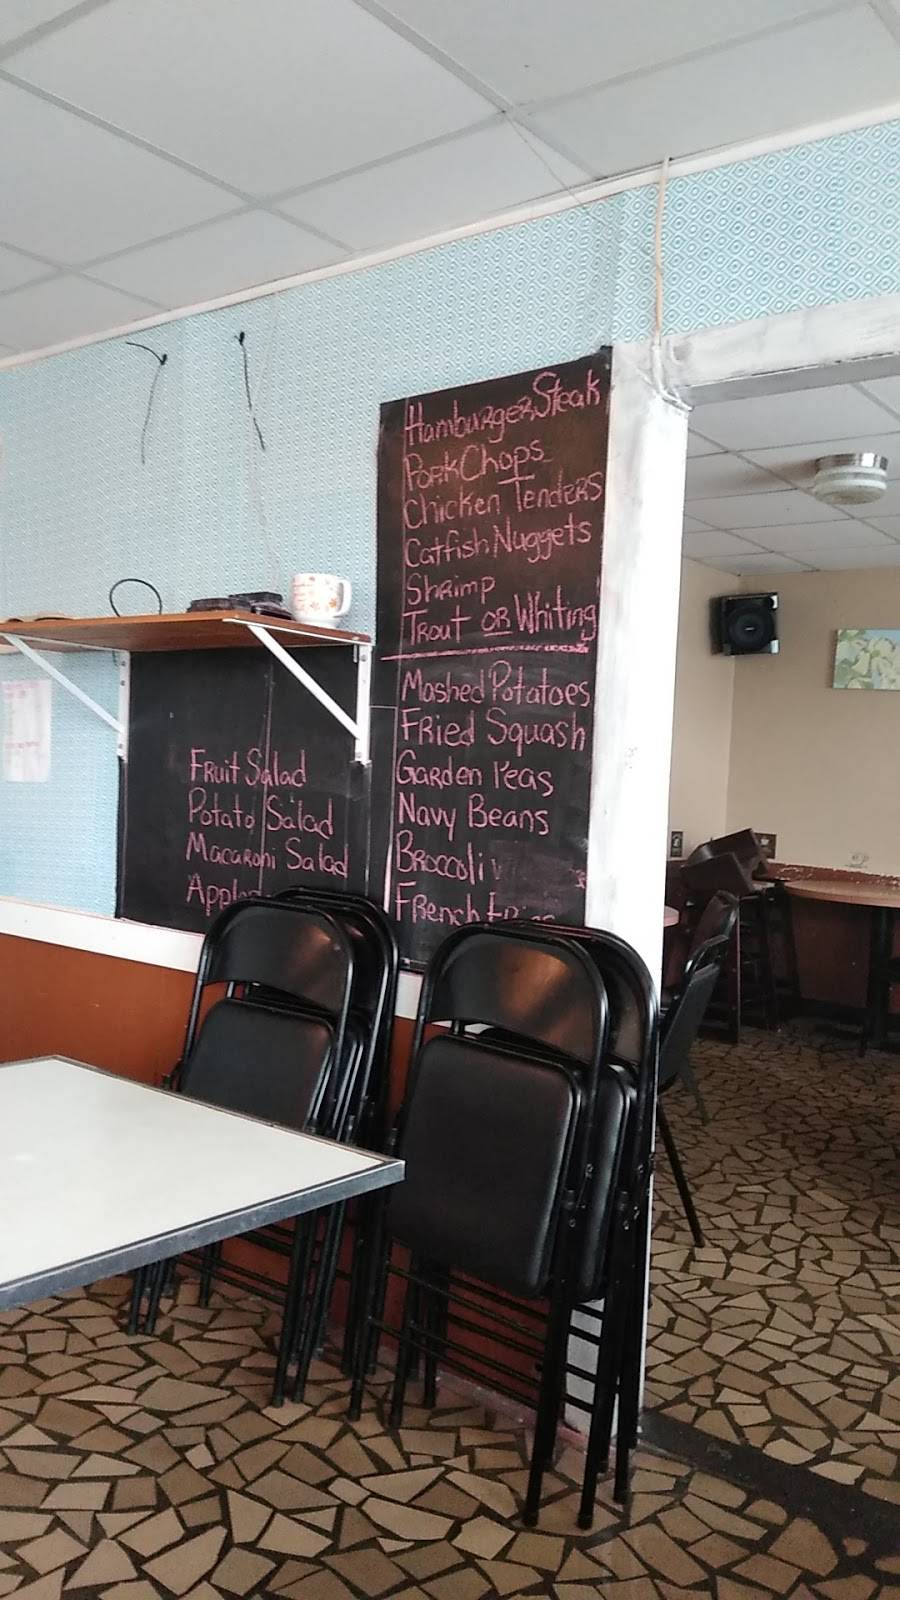 Hamburger Steak
Pork Chops
Chicken Tenders
Catfish Nuggets
Shrimp
Trout or Whiting
Mashed Potatoes
Fried Squash
Garden Peas
Navy Beans
Broccoli
French Fries
Fruit Salad
Potato Salad
Macaroni Salad